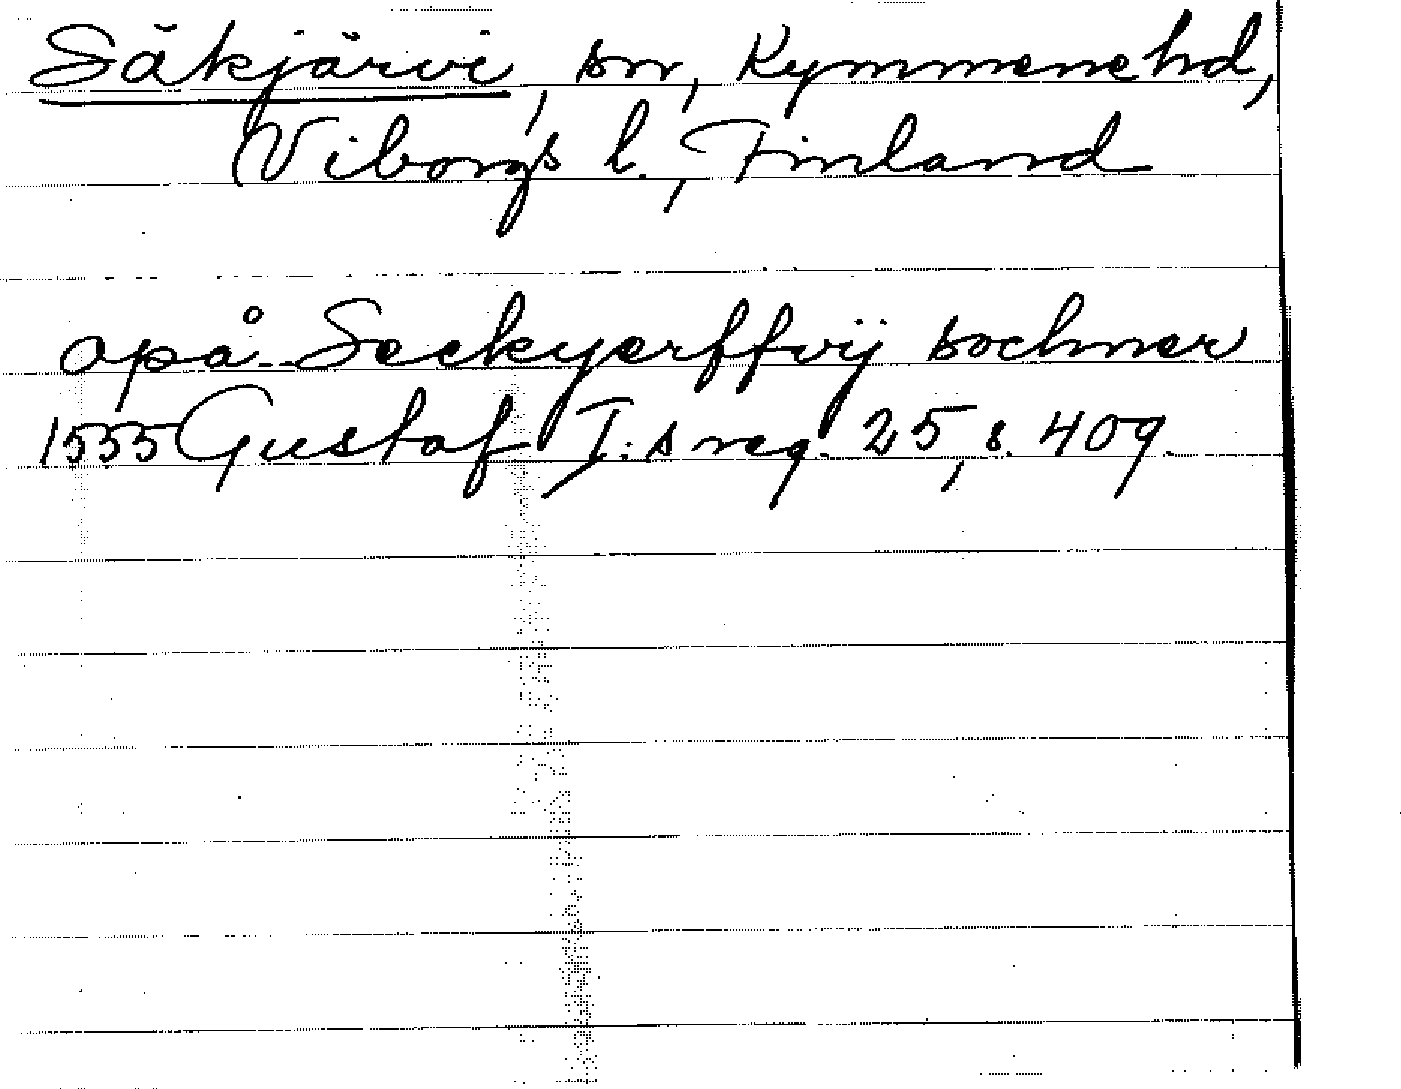 Säkjärvi, sn, Kymmenehd,
Viborgs l., Finland
opå Seckyerffvij sochner
1555 Gustaf I:s reg. 25, s. 409.